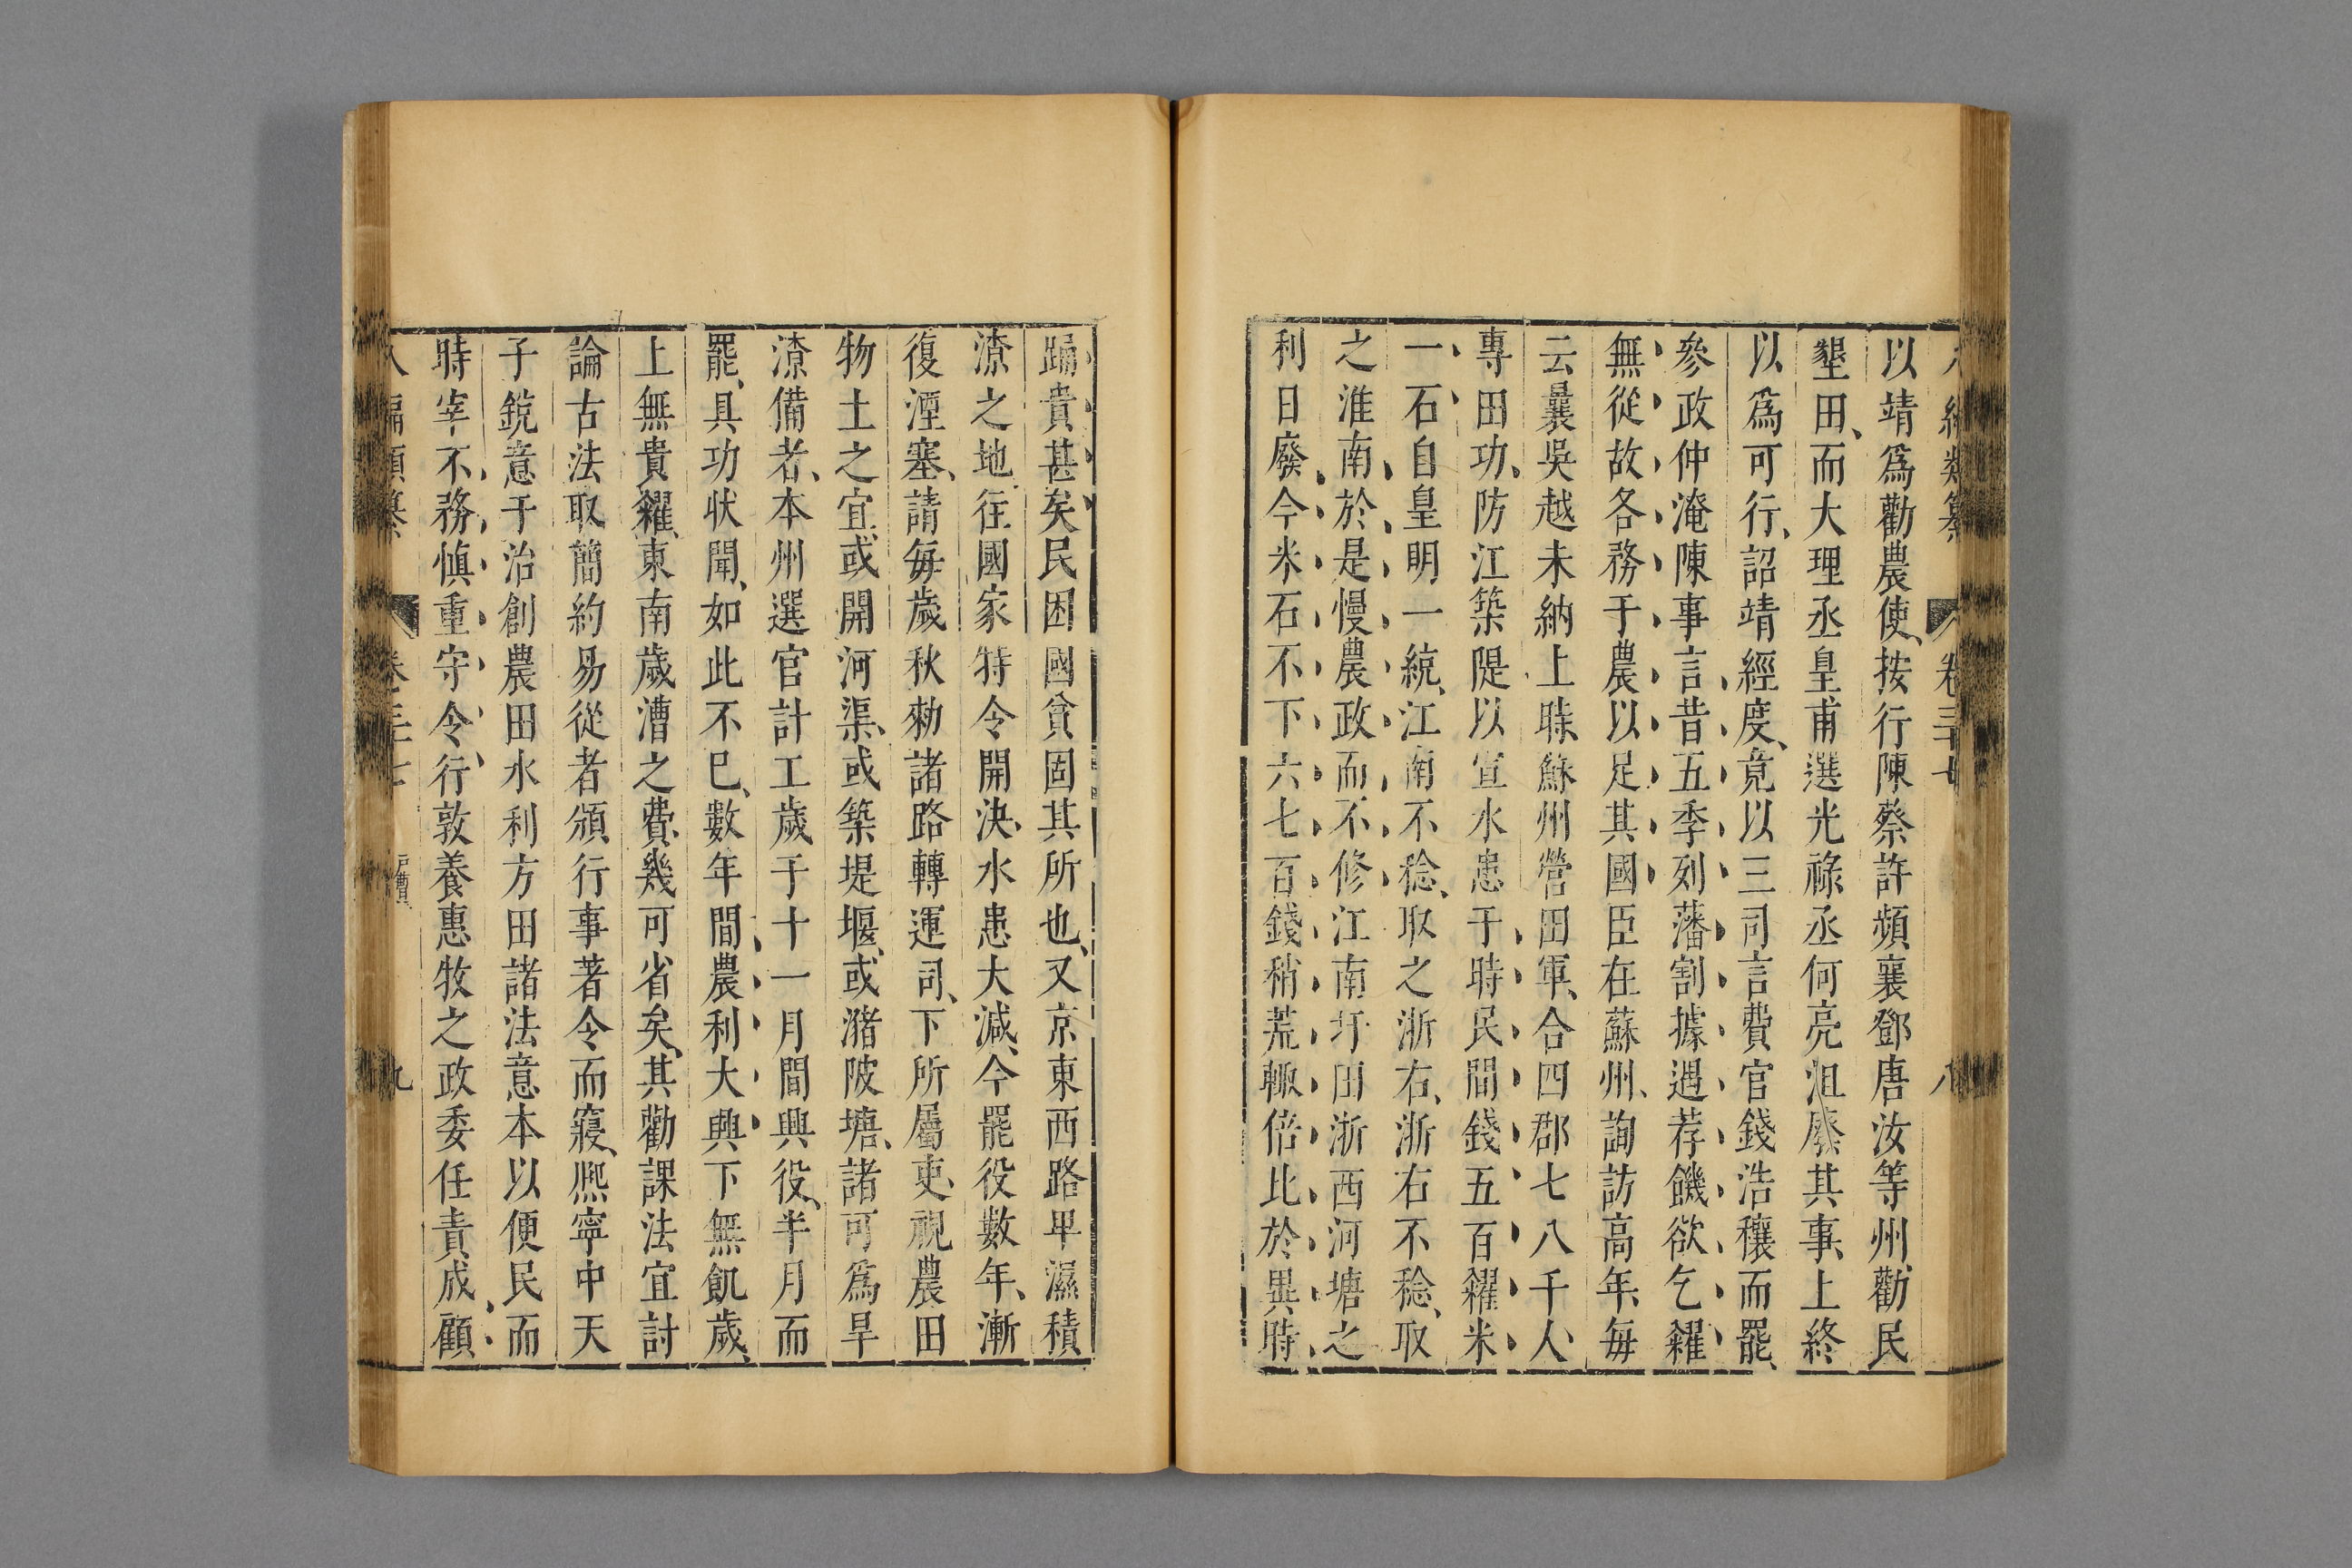 八編類纂 卷三十七 八
以靖爲勸農使、按行陳蔡許頻襄鄧唐汝等州、勸民
墾田、而大理丞皇甫選光祿丞何亮沮廢其事、上終
以爲可行、詔靖經度、竟以三司言費官錢浩穰而罷、
參政仲淹陳事言昔五季列藩割據遇荐饑欲乞糴
無從故各務于農以足其國臣在蘇州、詢訪高年、每
云曩吳越未納上時、蘇州營田軍、合四郡七八千人、
專田功、防江築隄以宣水患于時民間錢五百糴米
一石自皇明一統、江南不稔、取之浙右、浙右不稔、取
之淮南於是慢農政而不修江南圩田浙西河塘之
利日廢今米石不下六七百錢稍荒輙倍比於異時
踊貴甚矣民困國貧固其所也、又京東西路卑濕積
潦之地、往國家特令開決、水患大減、今罷役數年、漸
復湮塞、請每歲秋勑諸路轉運司、下所屬吏、視農田
物土之宜、或開河渠、或築堤堰、或瀦陂塘、諸可爲旱
潦備者、本州選官計工歲于十一月間興役、半月而
罷、具功狀聞、如此不已、數年間農利大興下無飢歲、
上無貴糴、東南歲漕之費、幾可省矣、其勸課法宜討
論古法取簡約易從者頒行事著令而寢、熈寧中天
子銳意于治創農田水利方田諸法意本以便民而
時宰不務愼重守令行敦養惠牧之政委任責成、顧
八編類纂 卷三十七 戶曹 九